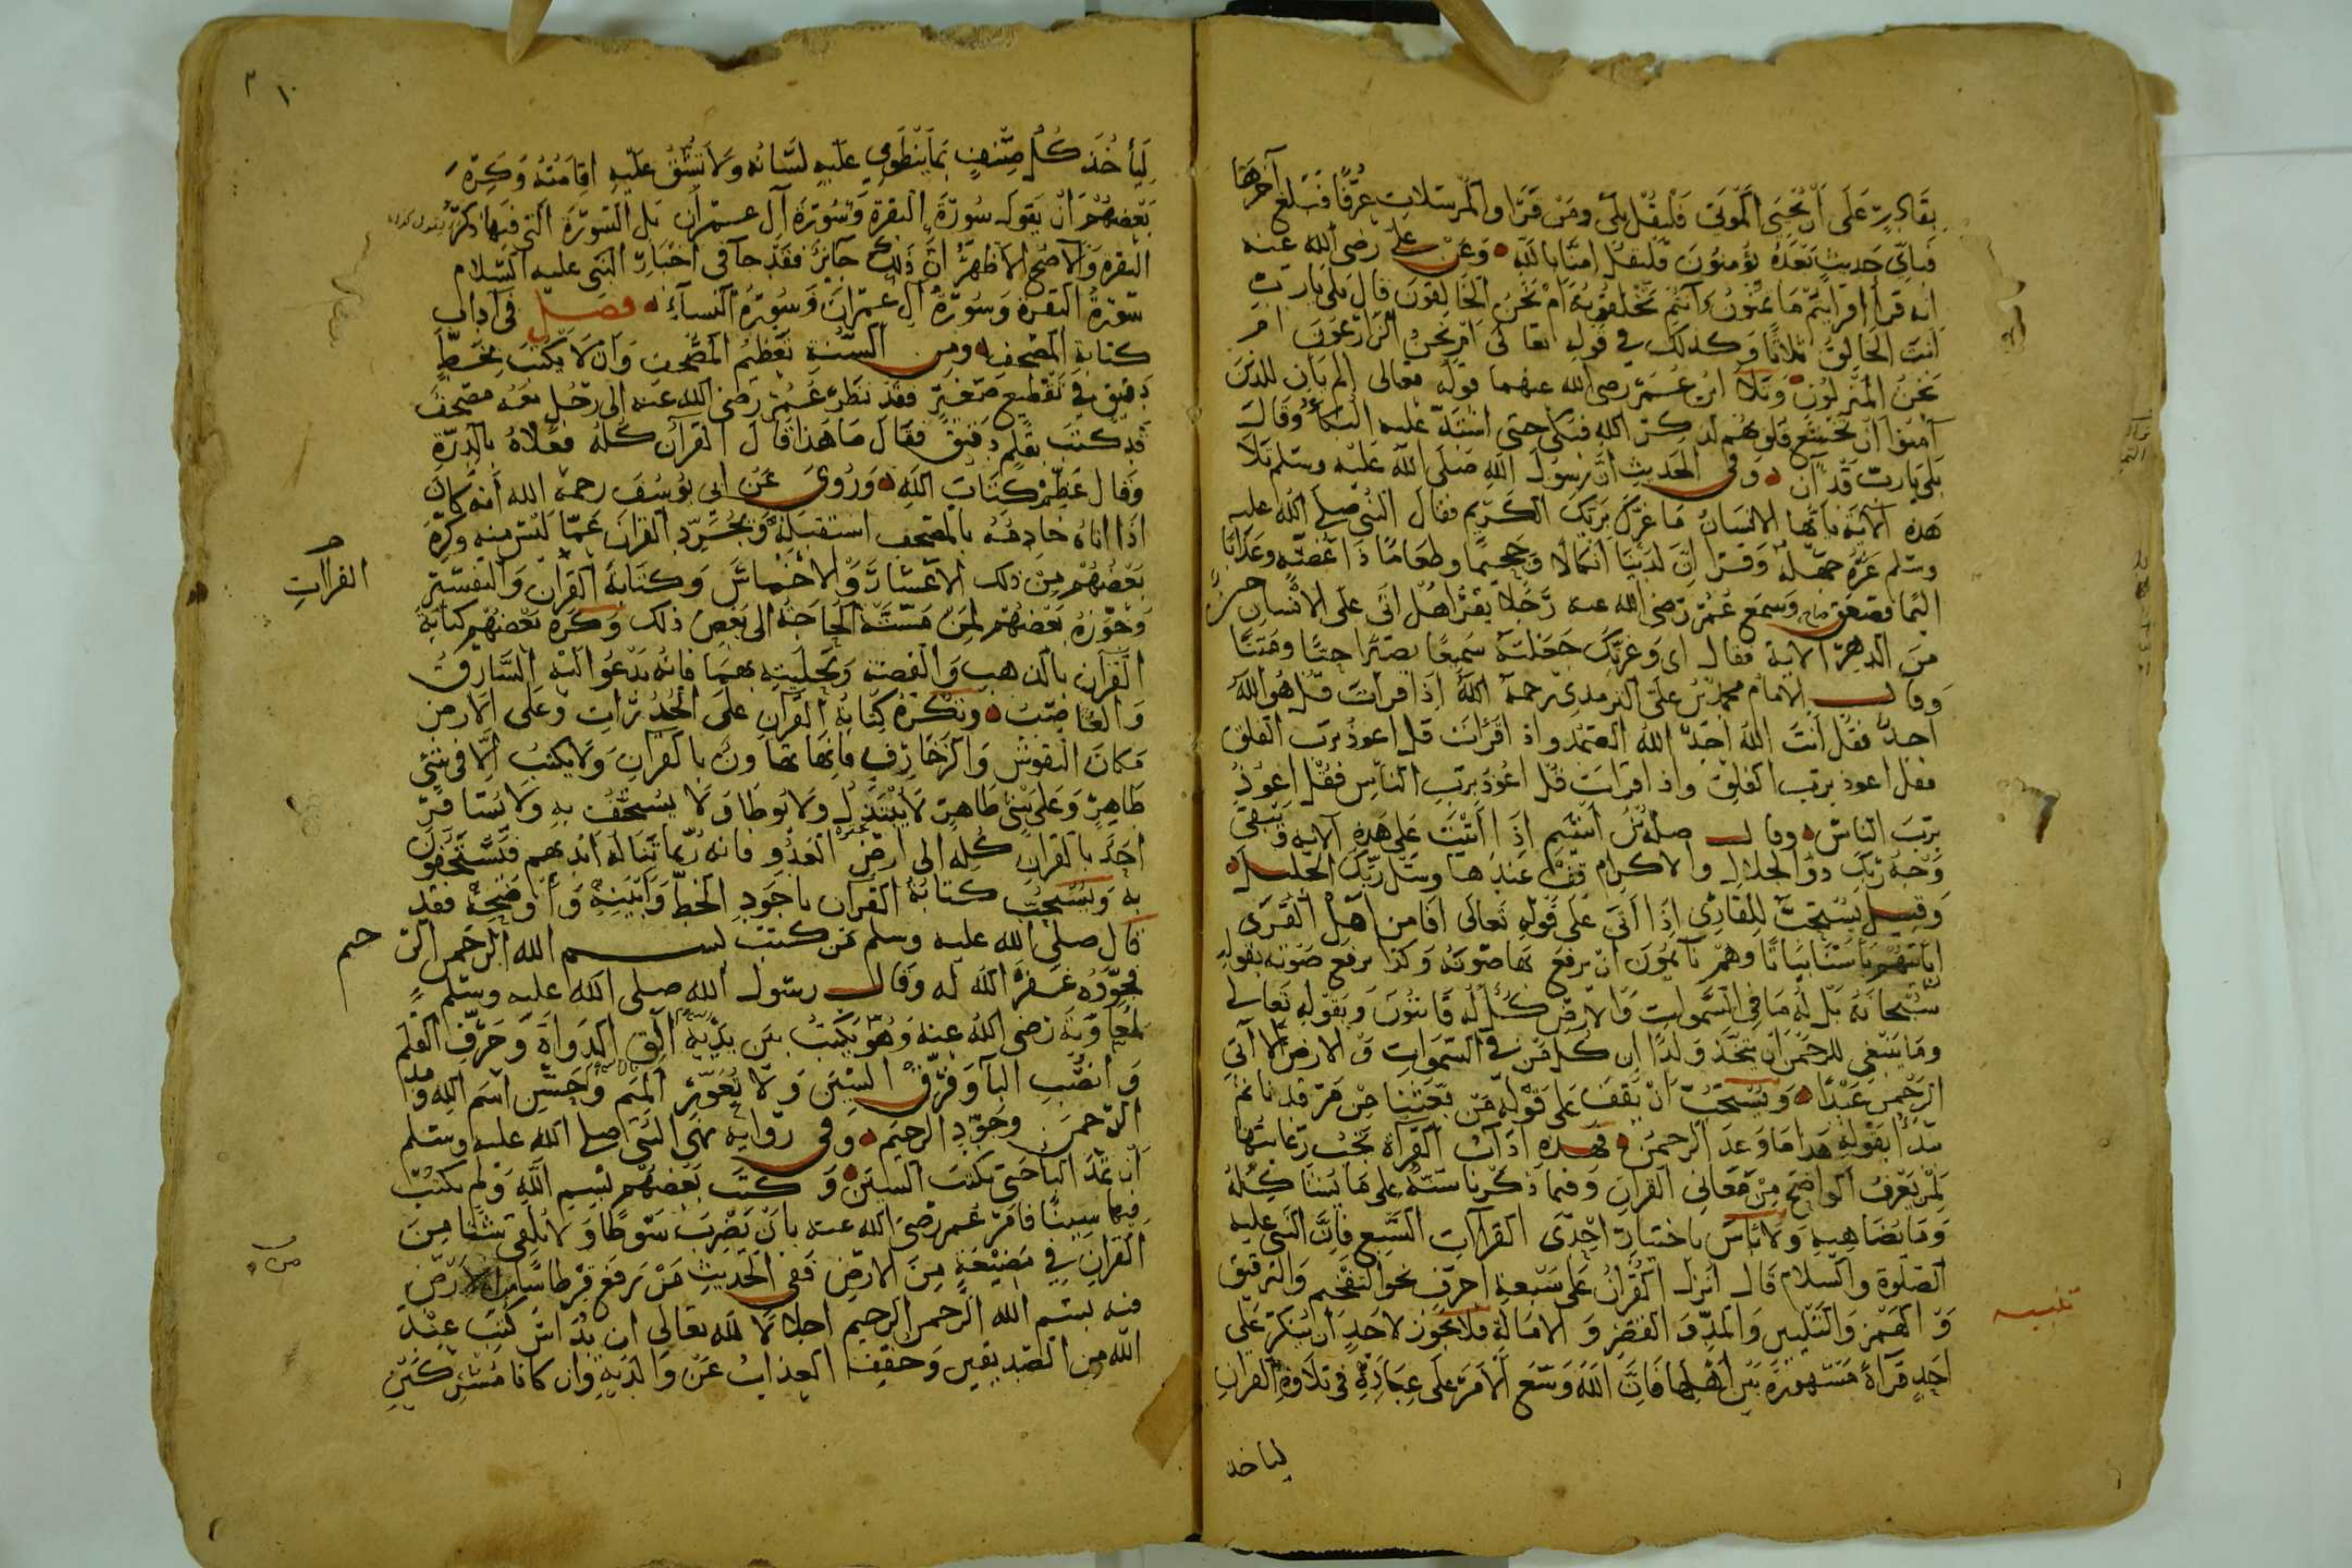 بقادر على ان يحيى الموتى فليقل بلى ومن قرا والمرسلات عرفا فبلغ آخرها
فباي حديث بعده يؤمنون فليقل امنا بالله وعن علي رضى الله عنه
انه قرا افرايتم ما تمنون ءانتم تخلقونه ام نحن الخالقون قال بلى يارب
انت الخالق ثلاثا وكذلك في قوله تعالى ام نحن الزارعون ام
نحن المنزلون وتلا ابن عمر رضى الله عنهما قوله تعالى الم يان للذين
آمنوا ان تخشع قلوبهم لذكر الله فبكى حتى اشتد عليه البكاء وقال
بلى يارب قد آن وفى الحديث ان رسول الله صلى الله عليه وسلم تلا
هذه الآية ياايها الانسان ما غرك بربك الكريم فقال النبي صلى الله عليه
وسلم غره جهله وقرا ان لدينا انكالا وجحيما وطعاما ذا غصة وعذابا
اليما فصعق وسمع عمر رضى الله عنه رجلا يقرا هل اتى على الانسان حين
من الدهر الاية فقال اى وعزتك جعلته سميعا بصيرا حيا وميتا
وقال الامام محمد بن على الترمذى رحمه الله اذا قرات قل هو الله
احد فقل انت الله احد الله الصمد واذ اقرات قل اعوذ برب الفلق
فقل اعوذ برب الفلق واذ اقرات قل اعوذ برب الناس فقل اعوذ
برب الناس وقال صلة بن اشيم اذا اتيت على هذه الآية ويبقى
وجه ربك ذو الجلال والاكرام قف عندها وسل ربك الجليل
وقيل يستحب للقارئ اذا اتى على قوله تعالى افامن اهل القرى
ان ياتيهم باسنا بياتا وهم نائمون ان يرفع بها صوته وكذا يرفع صوته بقوله
سبحانه بل له ما في السموات والارض كل له قانتون وبقوله تعالى
وما ينبغى للرحمن ان يتخذ ولدا ان كل من في السموات والارض الا آتى
الرحمن عبدا ويستحب ان يقف على قوله من بعثنا من مرقدنا ثم
يبتدأ بقوله هذا ما وعد الرحمن فهذه اداب القراة تجب رعايتها
لمن يعرف الواضح من معاني القران وفيما ذكرنا سنة على ما بينا كله
وما يضاهيه ولا باس باختيار احدى القراآت السبع فان النبى عليه
الصلوة والسلام قال انزل القران على سبعة احرف نحو التفخيم والترقيق
تنبيه
والهمز والتليين والمد والقصر والامالة فلا يجوز لاحد ان ينكر على
احد قراة مشهورة بين اهلها فان الله وسع الامر على عباده في تلاوة القران
لياخذ
١٠
لياخذ كل صنف بما ينطوى عليه لسانه ولا تشق عليه اقامته وكره
بعضهم ان يقول سورة البقرة وسورة آل عمران بل السورة التى فيها ذكر
البقره والاصح الاظهر ان ذلك جائز فقد جا في اخبار النبى عليه السلام
سورة البقرة وسورة آل عمران وسورة النساء فصل فى اداب
كتابة المصحف ومن السنة تعظيم المصحف وان لا يكتب بخط
دقيق في تقطيع صغير فقد نظر عمر رضى الله عنه الى رجل معه مصحف
قد كتب بقلم دقيق فقال ما هذا قال القران كله فعلاه بالدرة
وقال عظم كتاب الله وروى عن ابي يوسف رحمه الله انه كان
اذا اتاه خادمه بالمصحف استقبله ويجرد القران عما ليس منه وكره
بعضهم من ذلك الاعشار والاخماس وكتابة القران والتفسير
القراآت
وجوزه بعضهم لمن مسته الحاجة الى بعض ذلك وكره بعضهم كتابة
القران بالذهب والفضة وتحليته بهما فانه يدعو اليه السارق
والغاصب وتكره كتابة القران على الجدرات وعلى الارض
مكان النقوش والزخارف فانها تهاون بالقران ولا يكتب الا في شئ
طاهر وعلى شئ طاهر لا يبتذل ولا يوطا ولا يستخف به ولا يسافر
احد بالقران كله الى ارض العدو فانه ربما تناله ايديهم فيستخفون
به ويستحب كتابة القران باجود الخط وابينه واوضحه فقد
قال صلى الله عليه وسلم من كتب بسم الله الرحمن الرحيم
فجوده غفر الله له وقال رسول الله صلى الله عليه وسلم
لمعاوية رضى الله عنه وهو يكتب بين يديه الق الدواة وحرف القلم
وانصب البا وفرق السين ولا تعور الميم وحسن اسم الله ومد
الرحمن وجود الرحيم وفى رواية نهى النبى صلى الله عليه وسلم
ان تمد البا حتى يكتب السين وكتب بعضهم بسم الله ولم يكتب
فيها سينا فامر عمر رضى الله عنه بان يضرب سوطا ولا يلقى شيئا من
القران في مضيعة من الارض ففى الحديث من رفع قرطاسا من الارض
فيه بسم الله الرحمن الرحيم اجلالا لله تعالى ان يداس كتب عند
الله من الصديقين وخفف العذاب عن والديه وان كانا مشركين